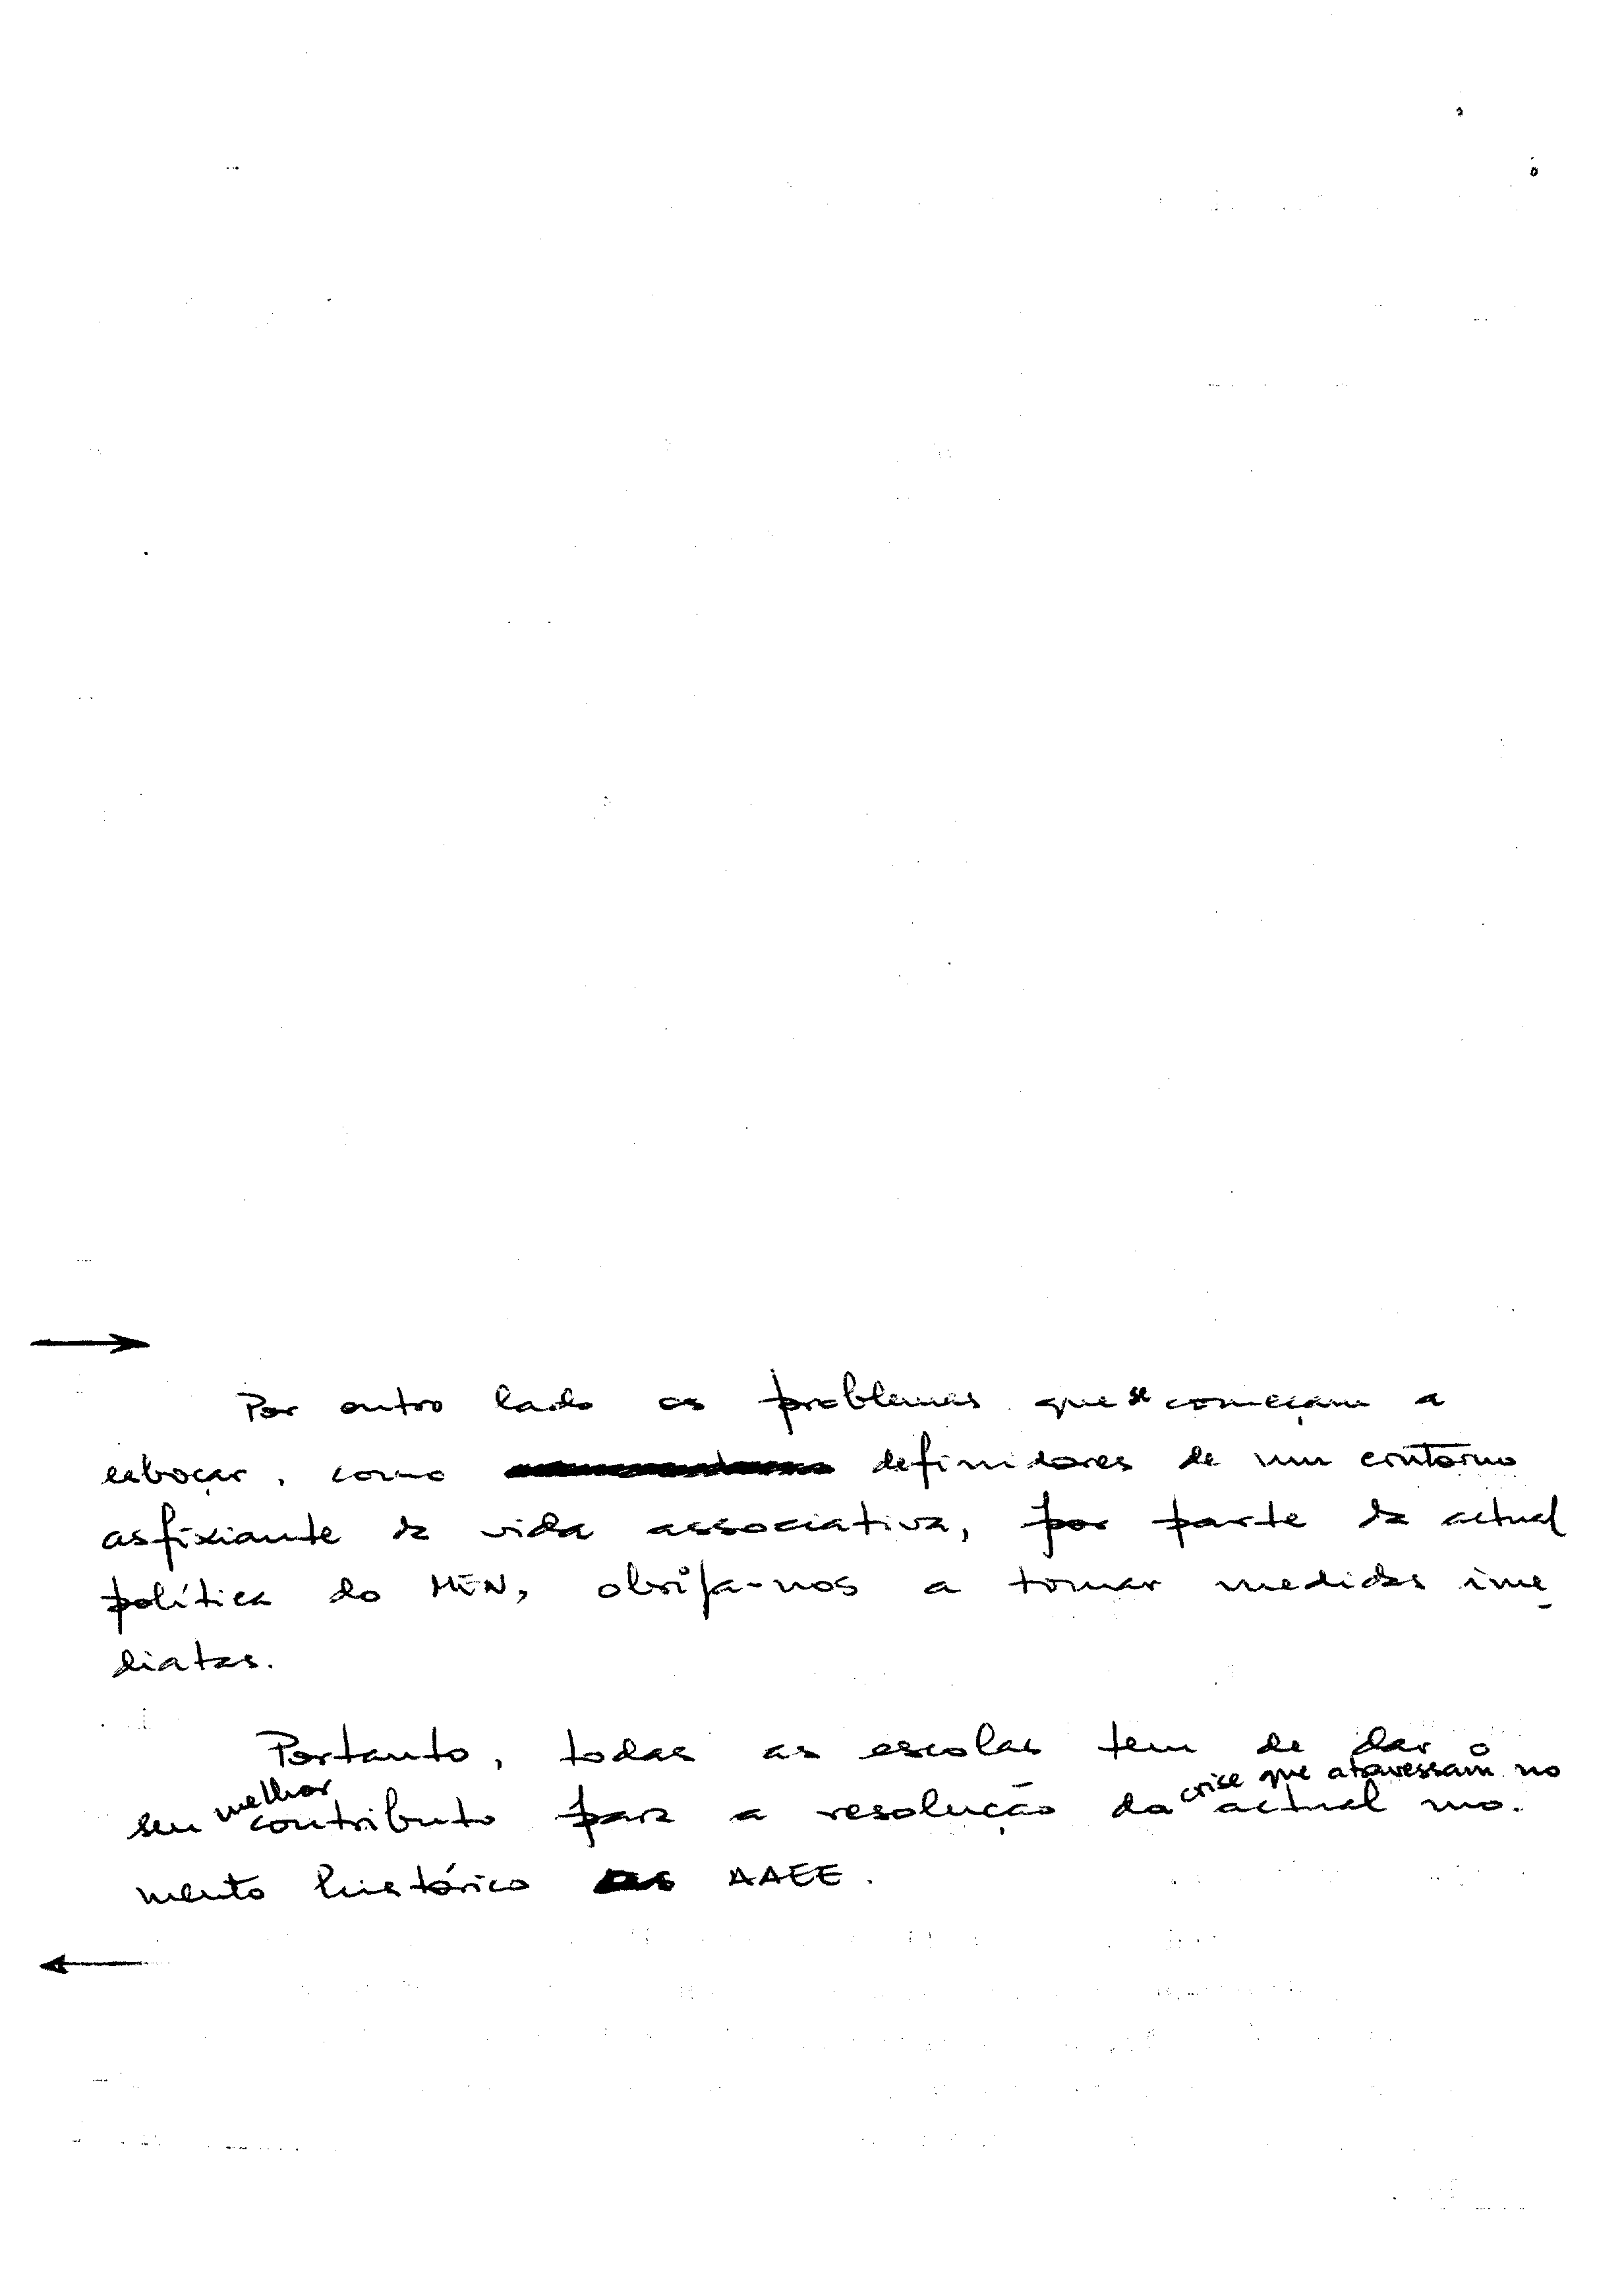 Por outro lado os problemas que se começam a
esboçar, como definidores de um contorno
asfixiante da vida associativa, por parte da actual
política do MEN, obriga-nos a tomar medidas ime
diatas.
Portanto, todas as escolas tem de dar o
seu melhor contributo para a resolução da crise que atravessam no actual mo-
mento histórico as AAEE.